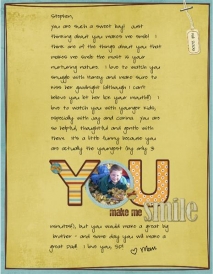 Stephen,
you are such a sweet boy! Just
thinking about you makes me smile! I
think one of the things about you that
makes me smile the most is your
nurturing nature. I love to watch you
snuggle with Kenzy and make sure to
kiss her goodnight (although I can't
believe you let her lick your mouth!). I
love to watch you with younger kids,
especially with Jay and Corrina. You are
so helpful, thoughtful and gentle with
them. It's a little funny because you
are actually the youngest (by only 3
YOU
make me
smile
minutes!), but you would make a great big
brother - and some day you will make a
great Dad! I love you, SP!
Mom